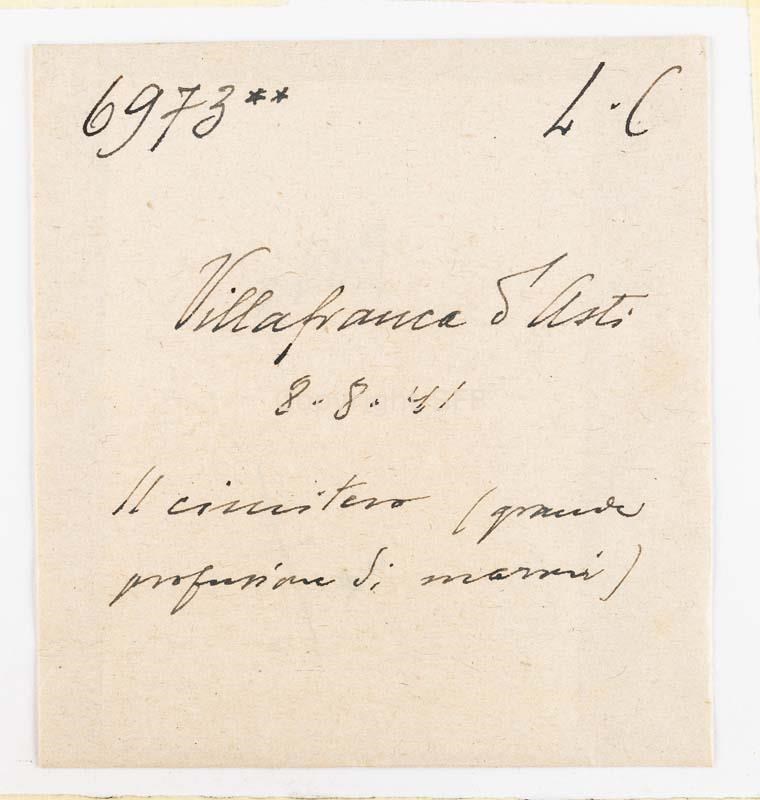 6973** L. C
Villafranca d'Asti
8.8.41
Il cimitero (grande
profusione di marmi)